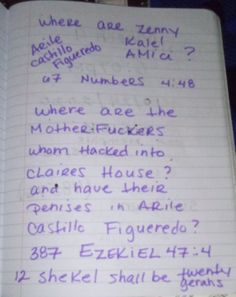 where are zenny
Arile Kalel
castillo AMici ?
Figueredo
47 Numbers 4:48
where are the
MotherFuckers
whom Hacked into
CLaires House ?
and have their
penises in ARile
Castillo Figueredo ?
387 EZEKIEL 47:4
12 shekel shall be twenty
gerahs